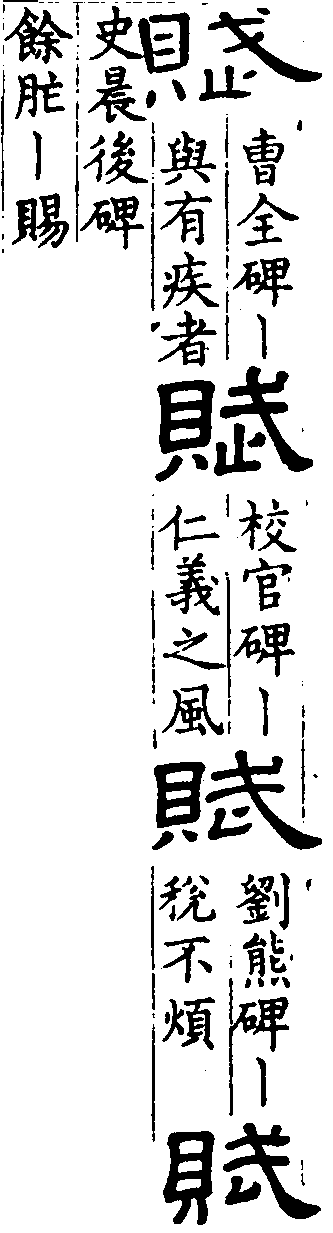 賦
曹全碑丨
與有疾者
賦
校官碑丨
仁義之風
賦
劉熊碑丨
稅不煩
賦
史晨後碑
餘胙丨賜